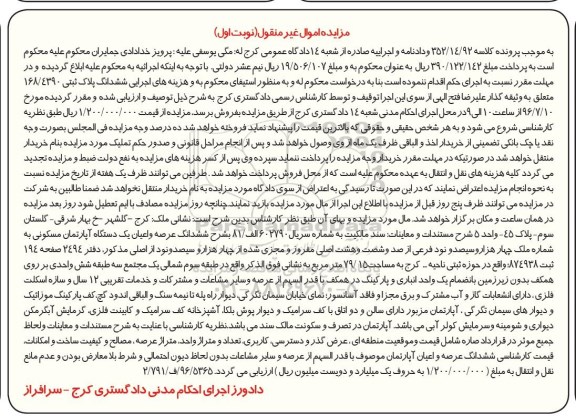 مزایده اموال غیر منقول(نوبت اول)
به موجب پرونده کلاسه ۳۵۲/۱۴/۹۲ ودادنامه و اجراییه صادره از شعبه ۱۴دادگاه عمومی کرج له: مگی یوسفی علیه : پرویز خدادادی جمایران محکوم علیه محکوم
است به پرداخت مبلغ ۳۹۰/۱۲۲/۱۴۲ ریال به عنوان محکوم به و مبلغ ۱۹/۵۰۶/۱۰۷ ریال نیم عشر دولتی. با توجه به اینکه اجرائیه به محکوم علیه ابلاغ گردیده و در
مهلت مقرر نسبت به اجرای حکم اقدام ننموده است بنا به درخواست محکوم له و به منظور استیفای محکوم به و هزینه های اجرایی ششدانگ پلاک ثبتی ۱۶۸/۴۳۹۰
متعلق به وثیقه گذار علیرضا فتح الهی از سوی این اجرا توقیف و توسط کارشناس رسمی دادگستری کرج به شرح ذیل توصیف و ارزیابی شده و مقرر گردیده مورخ
۹۶/۷/۱۰ از ساعت ۱۰ الی ۹در محل اجرای احکام مدنی شعبه ۱۴ دادگستری کرج از طریق مزایده بفروش برسد. مزایده از قیمت ۱/۲۰۰/۰۰۰/۰۰۰ ریال طبق نظریه
کارشناسی شروع می شود و به هر شخص حقیقی و حقوقی که بالاترین قیمت را پیشنهاد نماید فروخته خواهد شد ده درصد وجه مزایده فی المجلس بصورت وجه
نقد یا چک بانکی تضمینی از خریدار اخذ و الباقی ظرف یک ماه از وی وصول خواهد شد و پس از انجام مراحل قانونی و صدور حکم تملیک مورد مزایده بنام خریدار
منتقل خواهد شد در صورتیکه در مهلت مقرر خریدار وجه مزایده را پرداخت ننماید سپرده وی پس از کسر هزینه های مزایده به نفع دولت ضبط و مزایده تجدید
می گردد کلیه هزینه های نقل و انتقال به عهده محکوم علیه است که از محل فروش پرداخت خواهد شد. طرفین می توانند ظرف یک هفته از تاریخ مزایده نسبت
به نحوه انجام مزایده اعتراض نمایند که در این صورت تا رسیدگی به اعتراض از سوی دادگاه مورد مزایده به نام خریدار منتقل نخواهد شد ضمنا طالبین به شرکت
در مزایده می توانند ظرف پنج روز قبل از مزایده با اطلاع این اجرا از مال مورد مزایده بازدید نمایند چنانچه روز مزایده مصادف با ایام تعطیل شود روز بعد مزایده
در همان ساعت و مکان برگزار خواهد شد. مال مورد مزایده و بهای آن طبق نظر کارشناس بدین شرح است: نشانی ملک: کرج -گلشهر -خ بهار شرقی- گلستان
سوم- پلاک ۴۵- واحد ۵ شرح مستندات و معاینات: سند مالکیت به شماره سریال ۶۰۳۷۹۰الف/۸۱ بشرح ششدانگ عرصه واعیان یک دستگاه آپارتمان مسکونی به
شماره ملک چهار هزارو سیصدو نود فرعی از صد وشصت وهشت اصلی مفروز و مجزی شده از چهار هزار و سیصدونود از اصلی مذکور، دفتر ۲۴۹۴ صفحه ۱۹۴
ثبت ۸۷۴۹۳۸ واقع در حوزه ثبتی ناحیه .. کرج به مساحت ۷۹/۱۵ متر مربع به نشانی فوق الذکر واقع در طبقه سوم شمالی یک مجتمع سه طبقه شش واحدی بر روی
همکف بدون زیرزمین بانضمام یک واحد انباری و پارکینگ در همکف با قدر السهم از عرصه و سایر مشاعات و مشترکات و خدمات تقریبی ۱۲ سال و سازه اسکلت
فلزی، دارای انشعابات گاز و آب مشترک و برق مجزا و فاقد آسانسور، نمای خیابان سیمان تگرگی، دیوار راه پله تا نیمه سنگ و الباقی اندود گچ،کف پارکینگ موزائیک
و دیوار های سیمان تگرگی ، آپارتمان مزبور دارای سالن و دو اتاق با کف سرامیک و دیوار پوش بلکا، آشپزخانه کف سرامیک و کابینت فلزی، گرمایش آبگرمکن
دیواری و شومینه وسرمایش کولر آبی می باشد. آپارتمان در تصرف و سکونت مالک سند می باشد.نظریه کارشناسی با عنایت به شرح مستندات و معاینات ولحاظ
جمیع موثر در قرارداد صاره شامل قیمت وموقعیت منطقه ای ،عرض گذر و دسترسی، کاربری، تعداد و متراژ واحد، متراژ عرصه ، مصالح و کیفیت ساخت و امکانات،
قیمت کارشناسی ششدانگ عرصه و اعیان آپارتمان موصوف با قدر السهم از عرصه و سایر مشاعات بدون لحاظ دیون احتمالی و شرط بلا معارض بودن و عدم مانع
نقل و انتقال به مبلغ ( ۱/۲۰۰/۰۰۰/۰۰۰ به حروف یک میلیارد و دویست میلیون ریال ) ارزیابی می گردد. ۹۶/۵۳۶۵/ف ۲/۷۹۱/
دادورز اجرای احکام مدنی دادگستری کرج - سرافراز